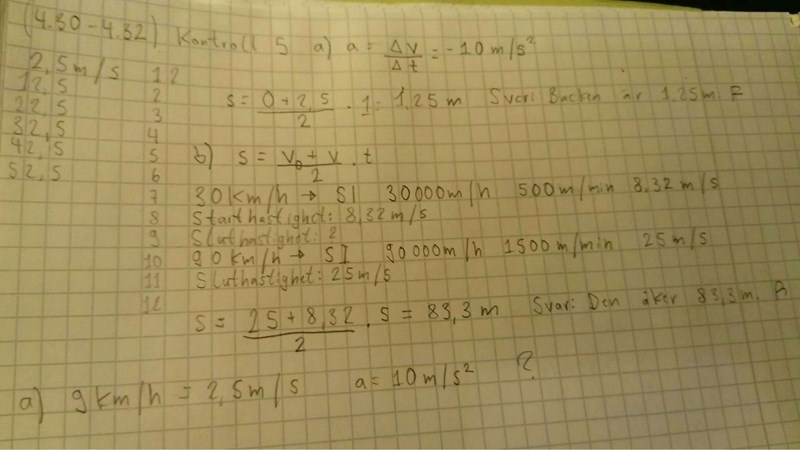 (4.30-4.32) Kontroll 5 a) a = Δv/Δt = -10 m/s²
2,5 m/s 1?
12,5 2
22,5 3
32,5 4
42,5 5
52,5 6
7
8
9
10
11
12
s = (0+2,5)/2 · 1 = 1,25 m Svar: Backen är 1,25 m. F
b) s = (v₀+v)/2 · t
30 km/h → SI 30000 m/h 500 m/min 8,32 m/s
Starthastighet: 8,32 m/s
Sluthastighet: ?
90 km/h → SI 90000 m/h 1500 m/min 25 m/s
Sluthastighet: 25 m/s
s = (25+8,32)/2 · 5 = 83,3 m Svar: Den åker 83,3 m. R
a) 9 km/h = 2,5 m/s a = 10 m/s² ?